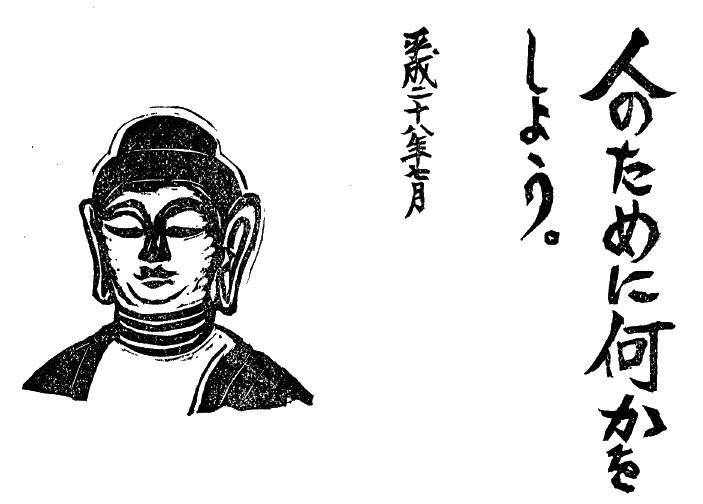 人のために何かを
しよう。
平成二十八年七月